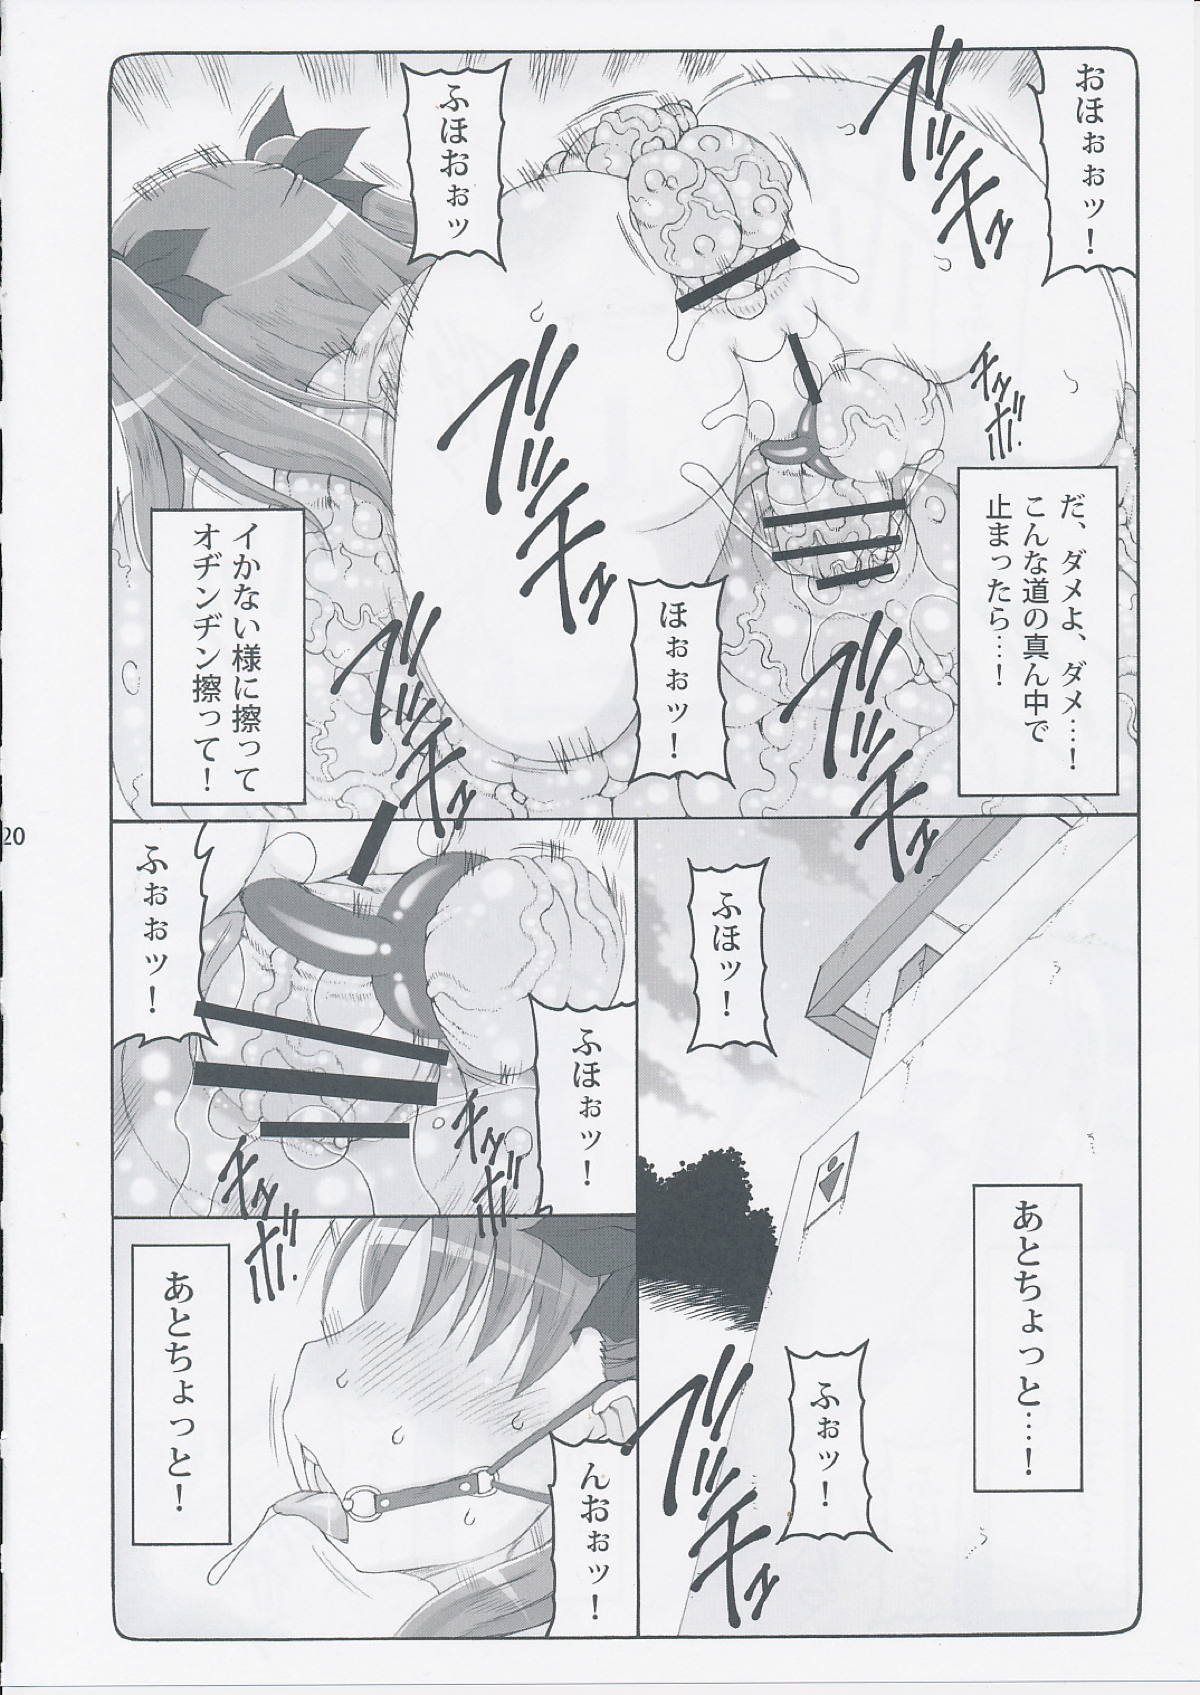 おほぉぉッ！
ブブッチュッ
ふほおぉッ
チュッボ!!
だ、ダメよ、ダメ…！
こんな道の真ん中で
止まったら…！
ブブッチュッ
ほぉぉッ！
ブブッチュッ
イかない様に擦って
オヂンヂン擦って！
ブブッチュッ
ふほッ！
あとちょっと…！
ふぉッ！
ブブッチュッ
ふぉぉッ！
ふほぉッ！
チュッボ!!
チュッボ!!
んおぉッ！
あとちょっと！
20